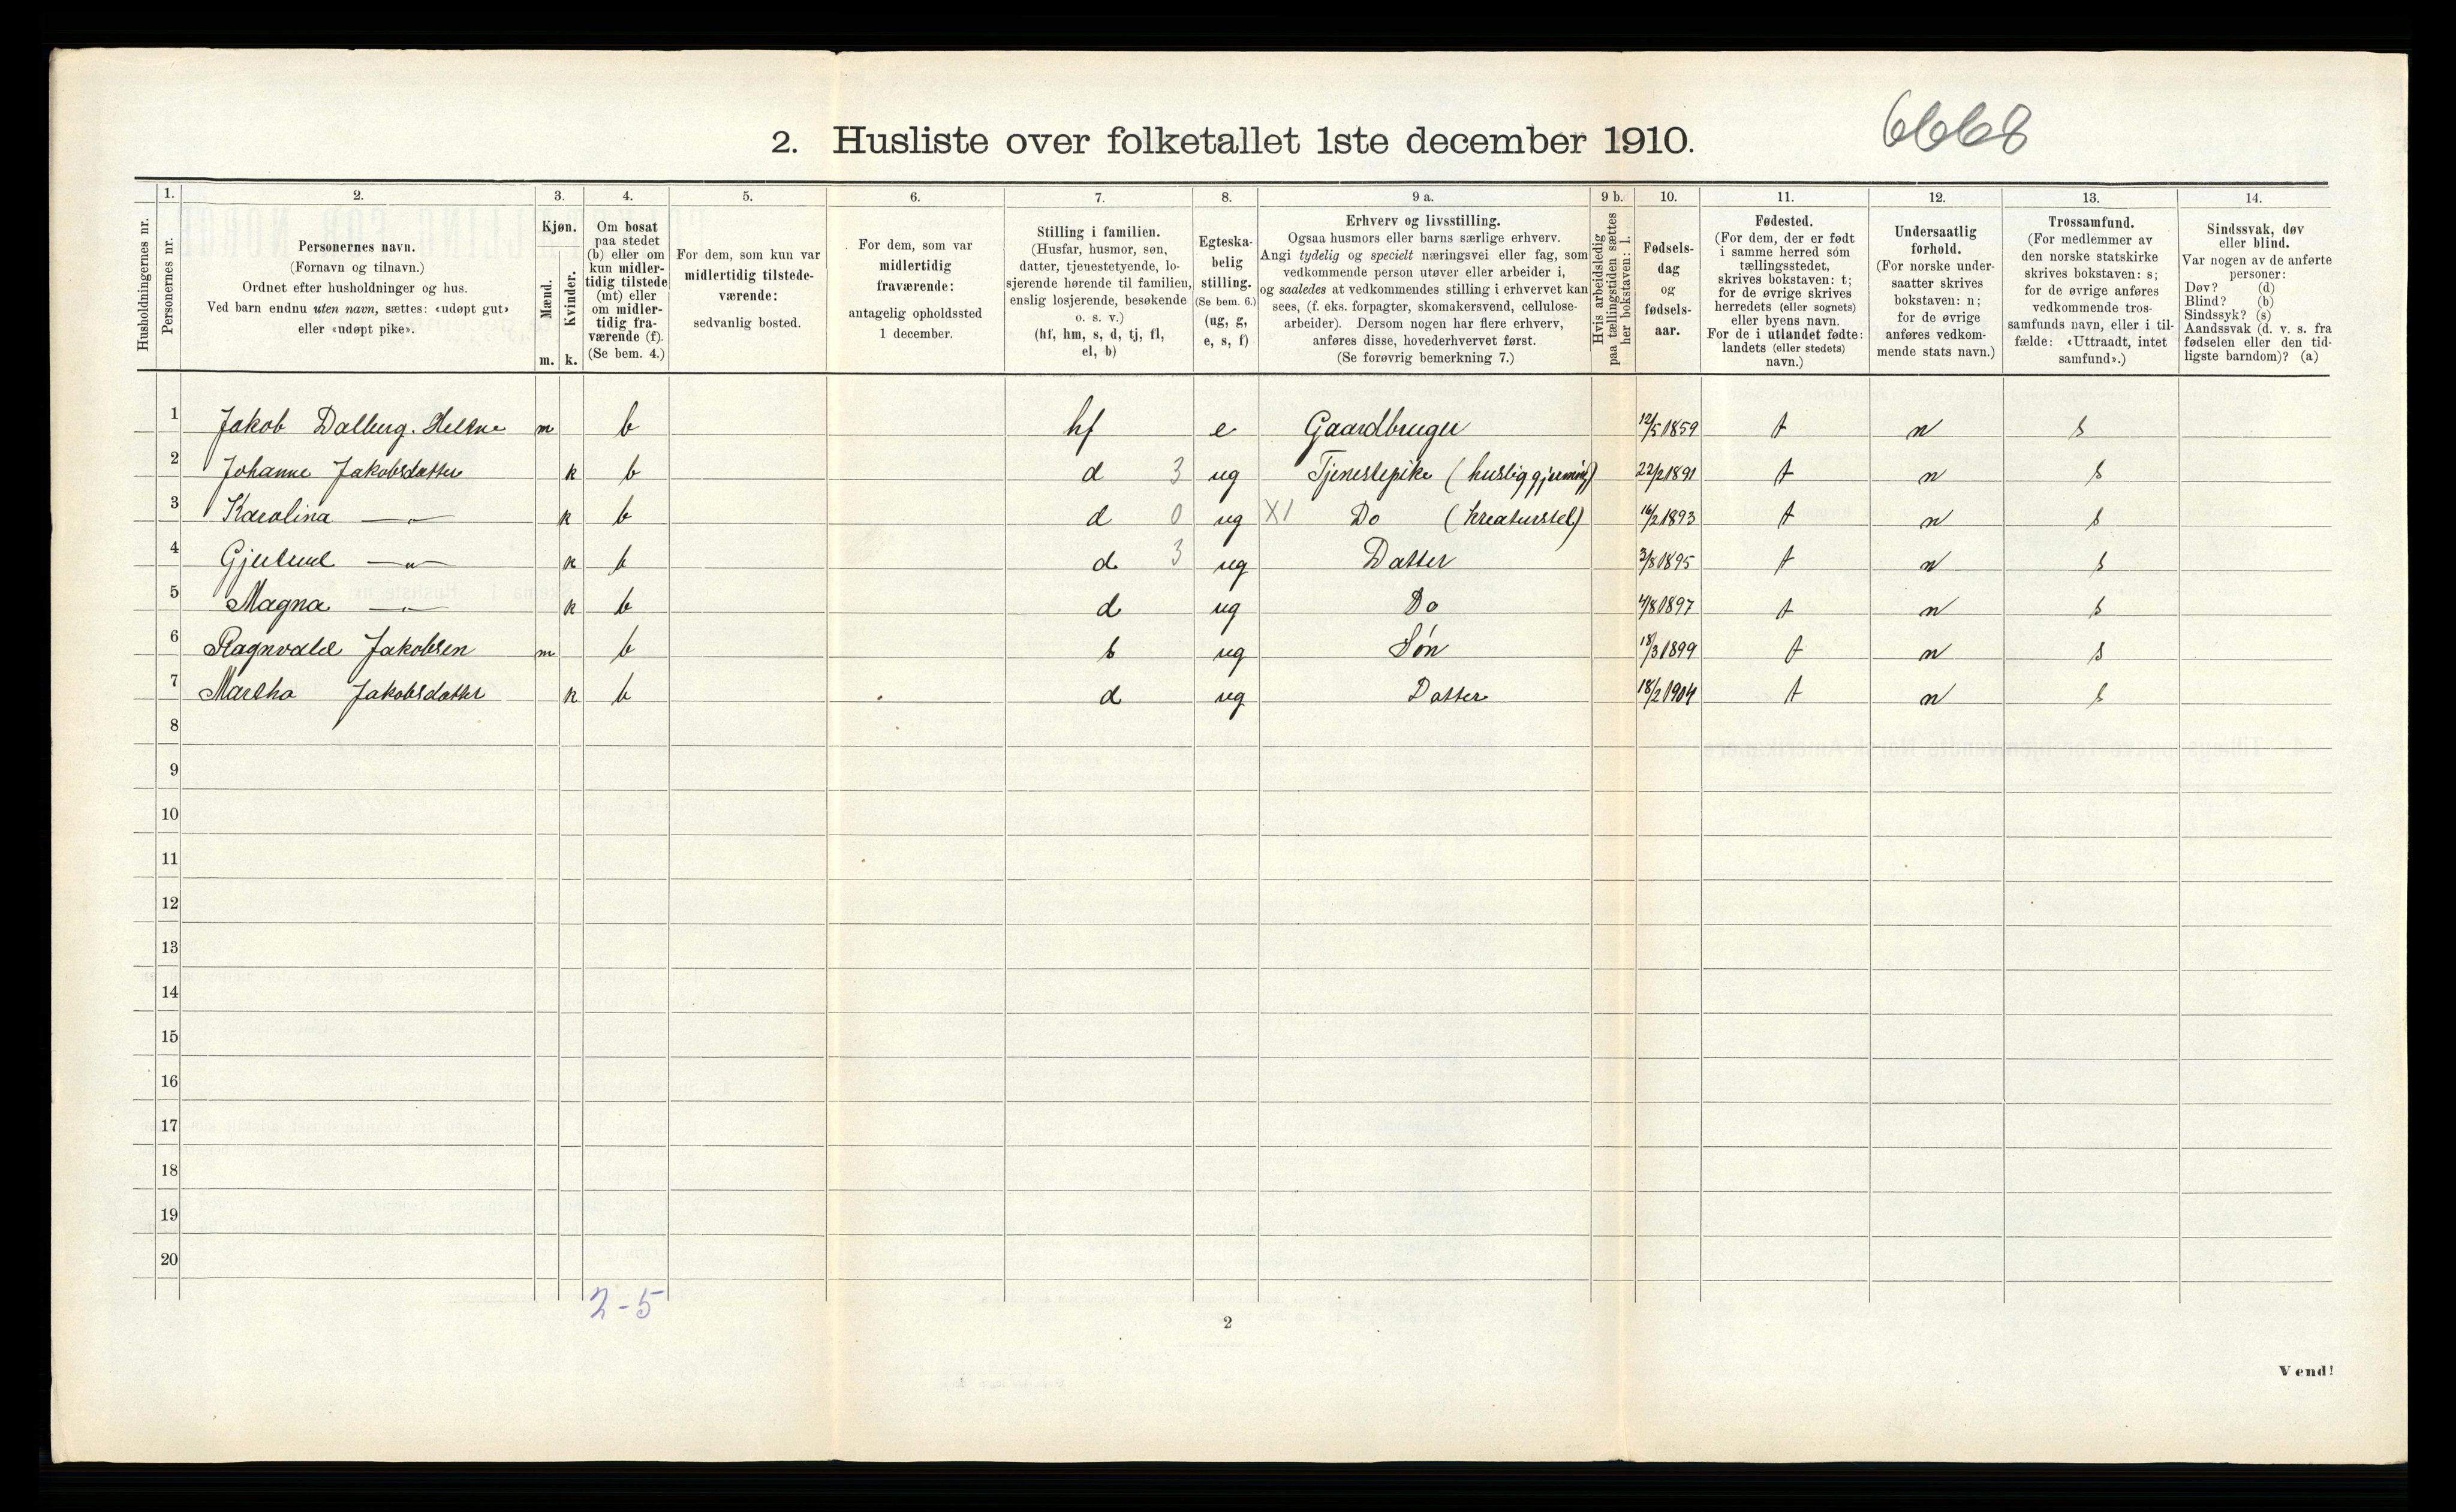 6668
2. Husliste over folketallet 1ste december 1910.
Husholdningernes nr.
1.
Personernes nr.
2.
Personernes navn.
(Fornavn og tilnavn.)
Ordnet efter husholdninger og hus.
Ved barn endnu uten navn, sættes: «udøpt gut»
eller «udøpt pike».
3.
Kjøn.
Mænd.
Kvinder.
m. k.
4.
Om bosat
paa stedet
(b) eller om
kun midler-
tidig tilstede
(mt) eller
om midler-
tidig fra-
værende (f).
(Se bem. 4.)
5.
For dem, som kun var
midlertidig tilstede-
værende:
sedvanlig bosted.
6.
For dem, som var
midlertidig
fraværende:
antagelig opholdssted
1 december.
7.
Stilling i familien.
(Husfar, husmor, søn,
datter, tjenestetyende, lo-
sjerende hørende til familien,
enslig losjerende, besøkende
o. s. v.)
(hf, hm, s, d, tj, fl,
el, b)
8.
Egteska-
belig
stilling.
(Se bem. 6.)
(ug, g,
e, s, f)
9 a.
Erhverv og livsstilling.
Ogsaa husmors eller barns særlige erhverv.
Angi tydelig og specielt næringsvei eller fag, som
vedkommende person utøver eller arbeider i,
og saaledes at vedkommendes stilling i erhvervet kan
sees, (f. eks. forpagter, skomakersvend, cellulose-
arbeider). Dersom nogen har flere erhverv,
anføres disse, hovederhvervet først.
(Se forøvrig bemerkning 7.)
9 b.
Hvis arbeidsledig
paa tællingstiden sættes
her bokstaven: l.
10.
Fødsels-
dag
og
fødsels-
aar.
11.
Fødested.
(For dem, der er født
i samme herred som
tællingsstedet,
skrives bokstaven: t;
for de øvrige skrives
herredets (eller sognets)
eller byens navn.
For de i utlandet fødte:
landets (eller stedets)
navn.)
12.
Undersaatlig
forhold.
(For norske under-
saatter skrives
bokstaven: n;
for de øvrige
anføres vedkom-
mende stats navn.)
13.
Trossamfund.
(For medlemmer av
den norske statskirke
skrives bokstaven: s;
for de øvrige anføres
vedkommende tros-
samfunds navn, eller i til-
fælde: «Uttraadt, intet
samfund».)
14.
Sindssvak, døv
eller blind.
Var nogen av de anførte
personer:
Døv? (d)
Blind? (b)
Sindssyk? (s)
Aandssvak (d. v. s. fra
fødselen eller den tid-
ligste barndom)? (a)
1 Jakob Dalberg. m b hf e Gaardbruger 12/5 1859 t n s
2 Johanne Jakobsdatter k b d 3 ug Tjenestepike (huslig gjerning) 22/2 1891 t n s
3 Karolina —„— k b d 0 ug X1 Do (kreaturstel) 16/2 1893 t n s
4 Gjertrud —„— k b d 3 ug Datter 3/8 1895 t n s
5 Magna —„— k b d ug Do 4/8 1897 t n s
6 Ragnvald Jakobsen m b s ug Søn 18/3 1899 t n s
7 Martha Jakobsdatter k b d ug Datter 18/2 1904 t n s
8
9
10
11
12
13
14
15
16
17
18
19
20
2-5
2
Vend!